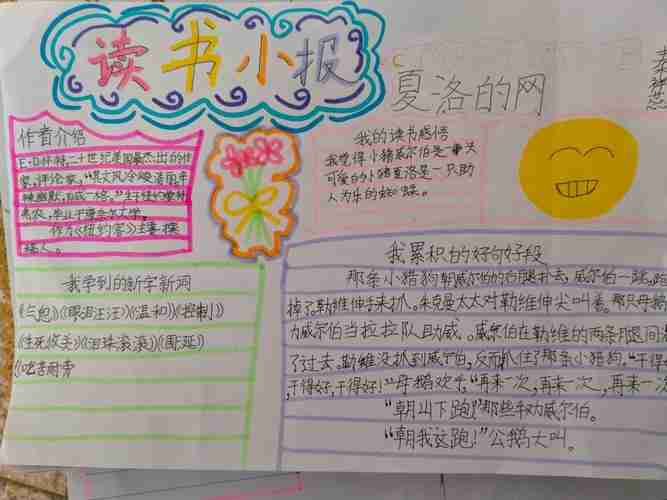 读书小报
夏洛的网
作者介绍
E·B怀特,二十世纪美国最杰出的作
家,评论家,"其文风冷峻清丽,辛
辣幽默,自成一格。"生于纽约蒙特
弗农,毕业于康奈尔大学。
作为《纽约客》主要撰
稿人。
我的读书感悟
我觉得小猪威尔伯是一头
可爱的小猪夏洛是一只助
人为乐的蜘蛛。
我学到的新字新词
《气包》《眼泪汪汪》《温和》《控制》
《生死攸关》《泪珠滚滚》《蔓延》
《吃苦耐劳
我累积的好句好段
那条小猎狗朝威尔伯的后腿扑去,威尔伯一蹦,跑
掉了勒维伸手来抓。朱克曼太太对勒维伸尖叫着。那只母鹅
为威尔伯当拉拉队助威。威尔伯在勒维的两条腿间
了过去.勒维没抓到威尔伯,反而抓住了那条小猎狗,"干得
干得好,干得好!"母鹅欢乐"再来一次,再来一次,再来一
"朝山下跑!"那些羊劝威尔伯。
"朝我这跑!"公鹅大叫。